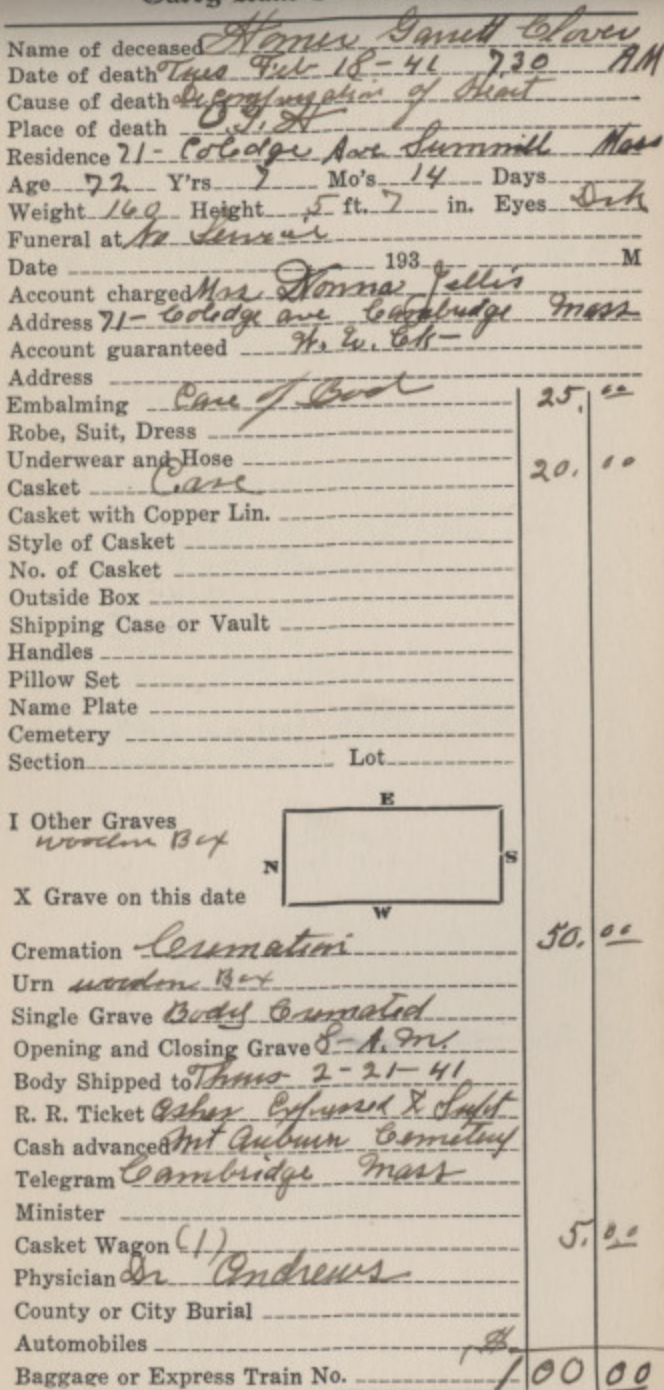 Name of deceased Homer Garrett Clover
Date of death Tues Feb 18-41 7 30 AM
Cause of death of Heart
Place of death
Residence 71- Coledge Ave Mass
Age 72 Y'rs 7 Mo's 14 Days
Weight 160 Height 5 ft. 7 in. Eyes Drk
Funeral at No
Date 193 M
Account charged Mrs
Address 71- Coledge ave Mass
Account guaranteed
Address
Embalming Care of Bod 25. 00
Robe, Suit, Dress
Underwear and Hose
Casket Case 20. 00
Casket with Copper Lin.
Style of Casket
No. of Casket
Outside Box
Shipping Case or Vault
Handles
Pillow Set
Name Plate
Cemetery
Section Lot
E
I Other Graves
wooden Box
N S
X Grave on this date
W
Cremation Cremation 50. 00
Urn wooden Box
Single Grave Body Cremated
Opening and Closing Grave 8- A.M.
Body Shipped to Thurs 2-21-41
R. R. Ticket
Cash advanced Mt Auburn Cemetery
Telegram Cambridge Mass
Minister
Casket Wagon (1) 5. 00
Physician Dr Andrews
County or City Burial
Automobiles
Baggage or Express Train No. 100 00